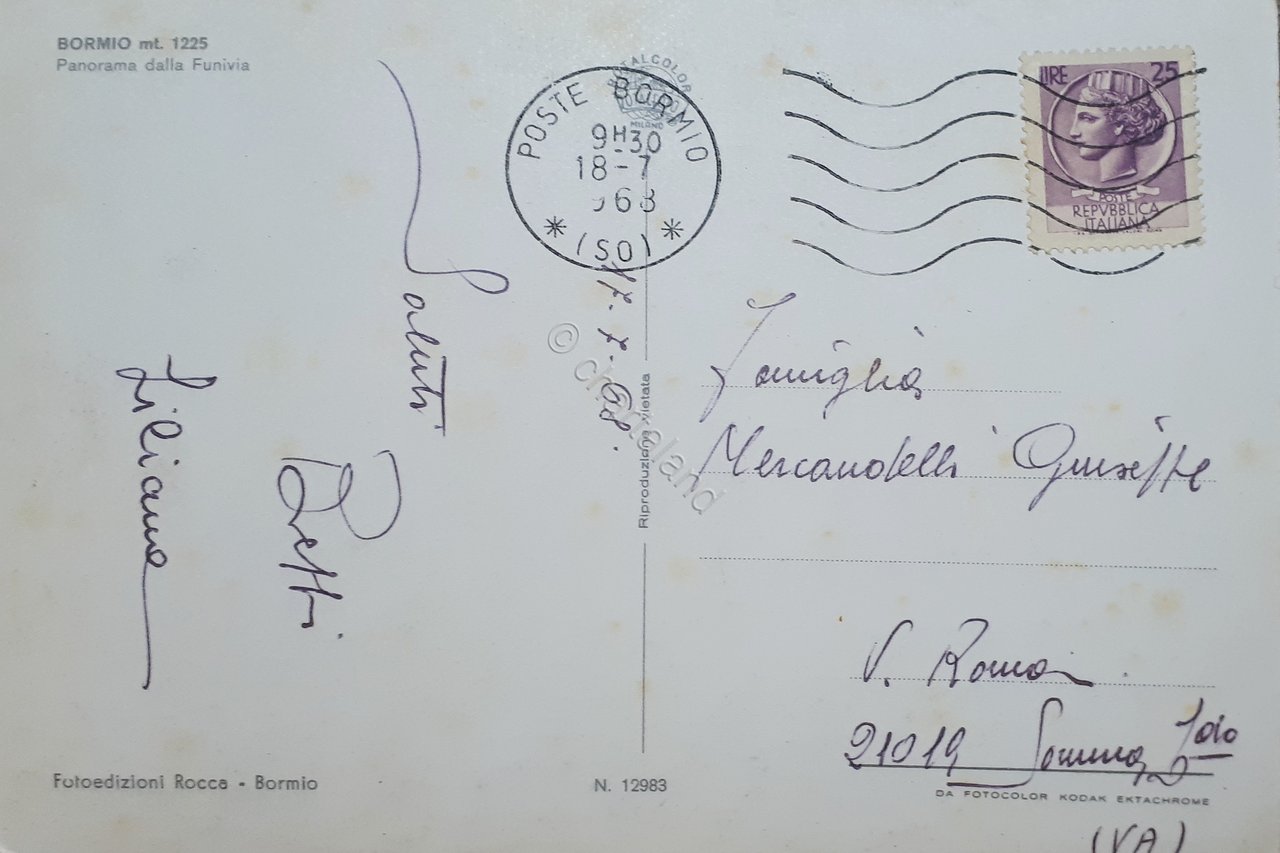 BORMIO mt. 1225
Panorama dalla Funivia
TOTALCOLOR
MILANO
POSTE BORMIO
9H30
18-7
968
(SO)
LIRE 25
POSTE
REPVBBLICA
ITALIANA
17.7.68.
Saluti
Betti
Liliana
© chartaland
Riproduzione vietata
Famiglia
Mercandelli Giuseppe
V. Roma
21019 Somma L.do
(VA)
Fotoedizioni Rocca - Bormio
N. 12983
DA FOTOCOLOR KODAK EKTACHROME